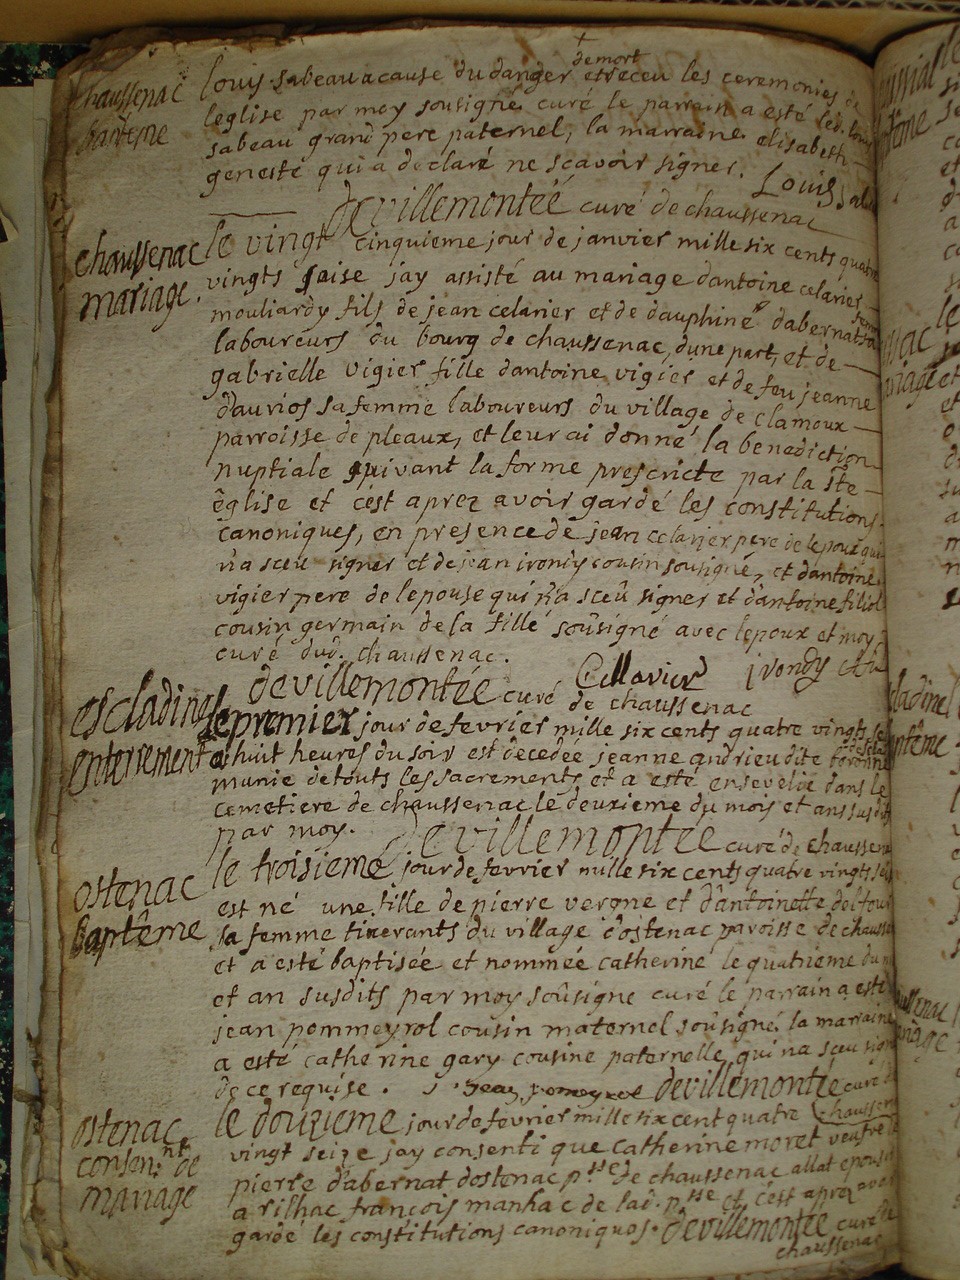 chaussenac
bapteme
louis sabeau a cause du danger de mort et receu les ceremonies de
leglise par moy sousigné curé le parrain a esté led. louis
sabeau grand pere paternel, la marraine elisabeth
geneste qui a declaré ne scavoir signer. Louis sab
devillemontée curé de chaussenac
chaussenac
mariage.
le vingt cinquieme jour de janvier mille six cents quatre
vingts seise jay assisté au mariage dantoine celarier
mouliardy fils de jean celarier et de dauphine dabernat sa femme
laboureurs du bourg de chaussenac, dune part, et de
gabrielle vigier fille dantoine vigier et de feu jeanne
daurios sa femme laboureurs du village de clamoux
parroisse de pleaux, et leur ai donné la benediction
nuptiale suivant la forme prescricte par la ste
église et cést aprez avoir gardé les constitutions
canoniques, en presence de jean celarier pere de lepoux qui
n'a sceu signer et de jean irondy cousin sousigné, et dantoine
vigier pere de lepouse qui n'a sceû signer et dantoine filiol
cousin germain de la fille soûsigné avec lepoux et moy
curé dud. chaussenac.
devillemontée curé de chaussenac
irondy
escladines
enterrement
le premier jour de fevrier mille six cents quatre vingts
a huit heures du soir est decedée jeanne andrieu dite
munie de touts les sacrements et a esté ensevelie dans le
cemetiere de chaussenac le deuxieme du mois et an susdit
par moy. devillemontée curé de chaussenac
ostenac
baptême
le troisieme jour de fevrier mille six cents quatre vingts
est né une fille de pierre vergne et d'antoinette deltour
sa femme tixerants du village dostenac paroisse de chausse
et a esté baptisée et nommée catherine le quatrieme du m
et an susdits par moy soûsigne curé le parrain a esté
jean pommeyrol cousin maternel soûsigné. la marraine
a esté catherine gary cousine paternelle, qui na sceu sign
de ce requise. Jean pomeyrol devillemontée curé de
chaussen
ostenac
consen.nt de
mariage
le douzieme jour de fevrier mille six cent quatre
vingt seize jay consenti que catherine moret veufve de
pierre dabernat dostenac p.sse de chaussenac allat epouser
a rilhac françois manhac de lad. p.sse et c'est aprez avoir
gardé les constitutions canoniques. devillemontée curé de
chaussenac